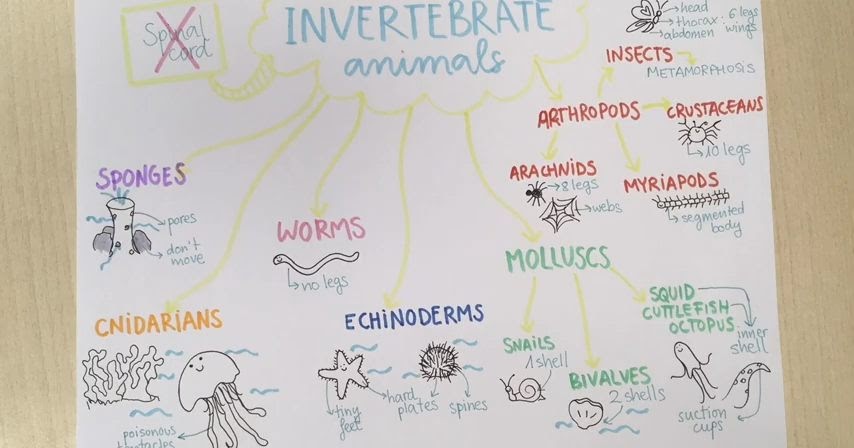 Spinal
cord
INVERTEBRATE
animals
head
thorax: 6 legs
wings
abdomen
INSECTS
METAMORPHOSIS
ARTHROPODS
CRUSTACEANS
10 legs
ARACHNIDS
8 legs
webs
MYRIAPODS
segmented
body
SPONGES
pores
don't
move
WORMS
no legs
MOLLUSCS
CNIDARIANS
poisonous
tentacles
ECHINODERMS
tiny
feet
hard
plates
spines
SNAILS
1 shell
BIVALVES
2 shells
SQUID
CUTTLEFISH
OCTOPUS
inner
shell
suction
cups